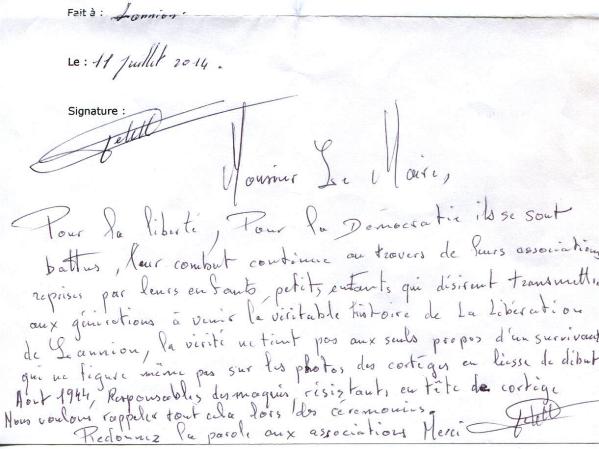 Fait à : Lannion.
Le : 11 Juillet 2014.
Signature :
Monsieur Le Maire,
Pour la liberté, Pour la Démocratie ils se sont
battus, leur combat continue au travers de leurs associations
reprises par leurs enfants, petits enfants qui désirent transmettre
aux générations à venir la véritable histoire de La Libération
de Lannion, la vérité ne tient pas aux seuls propos d'un survivant
qui ne figure même pas sur les photos des cortèges en liesse de début
Août 1944, Responsables des maquis, résistants en tête de cortège
Nous voulons rappeler tout cela lors des cérémonies.
Redonnez la parole aux associations Merci